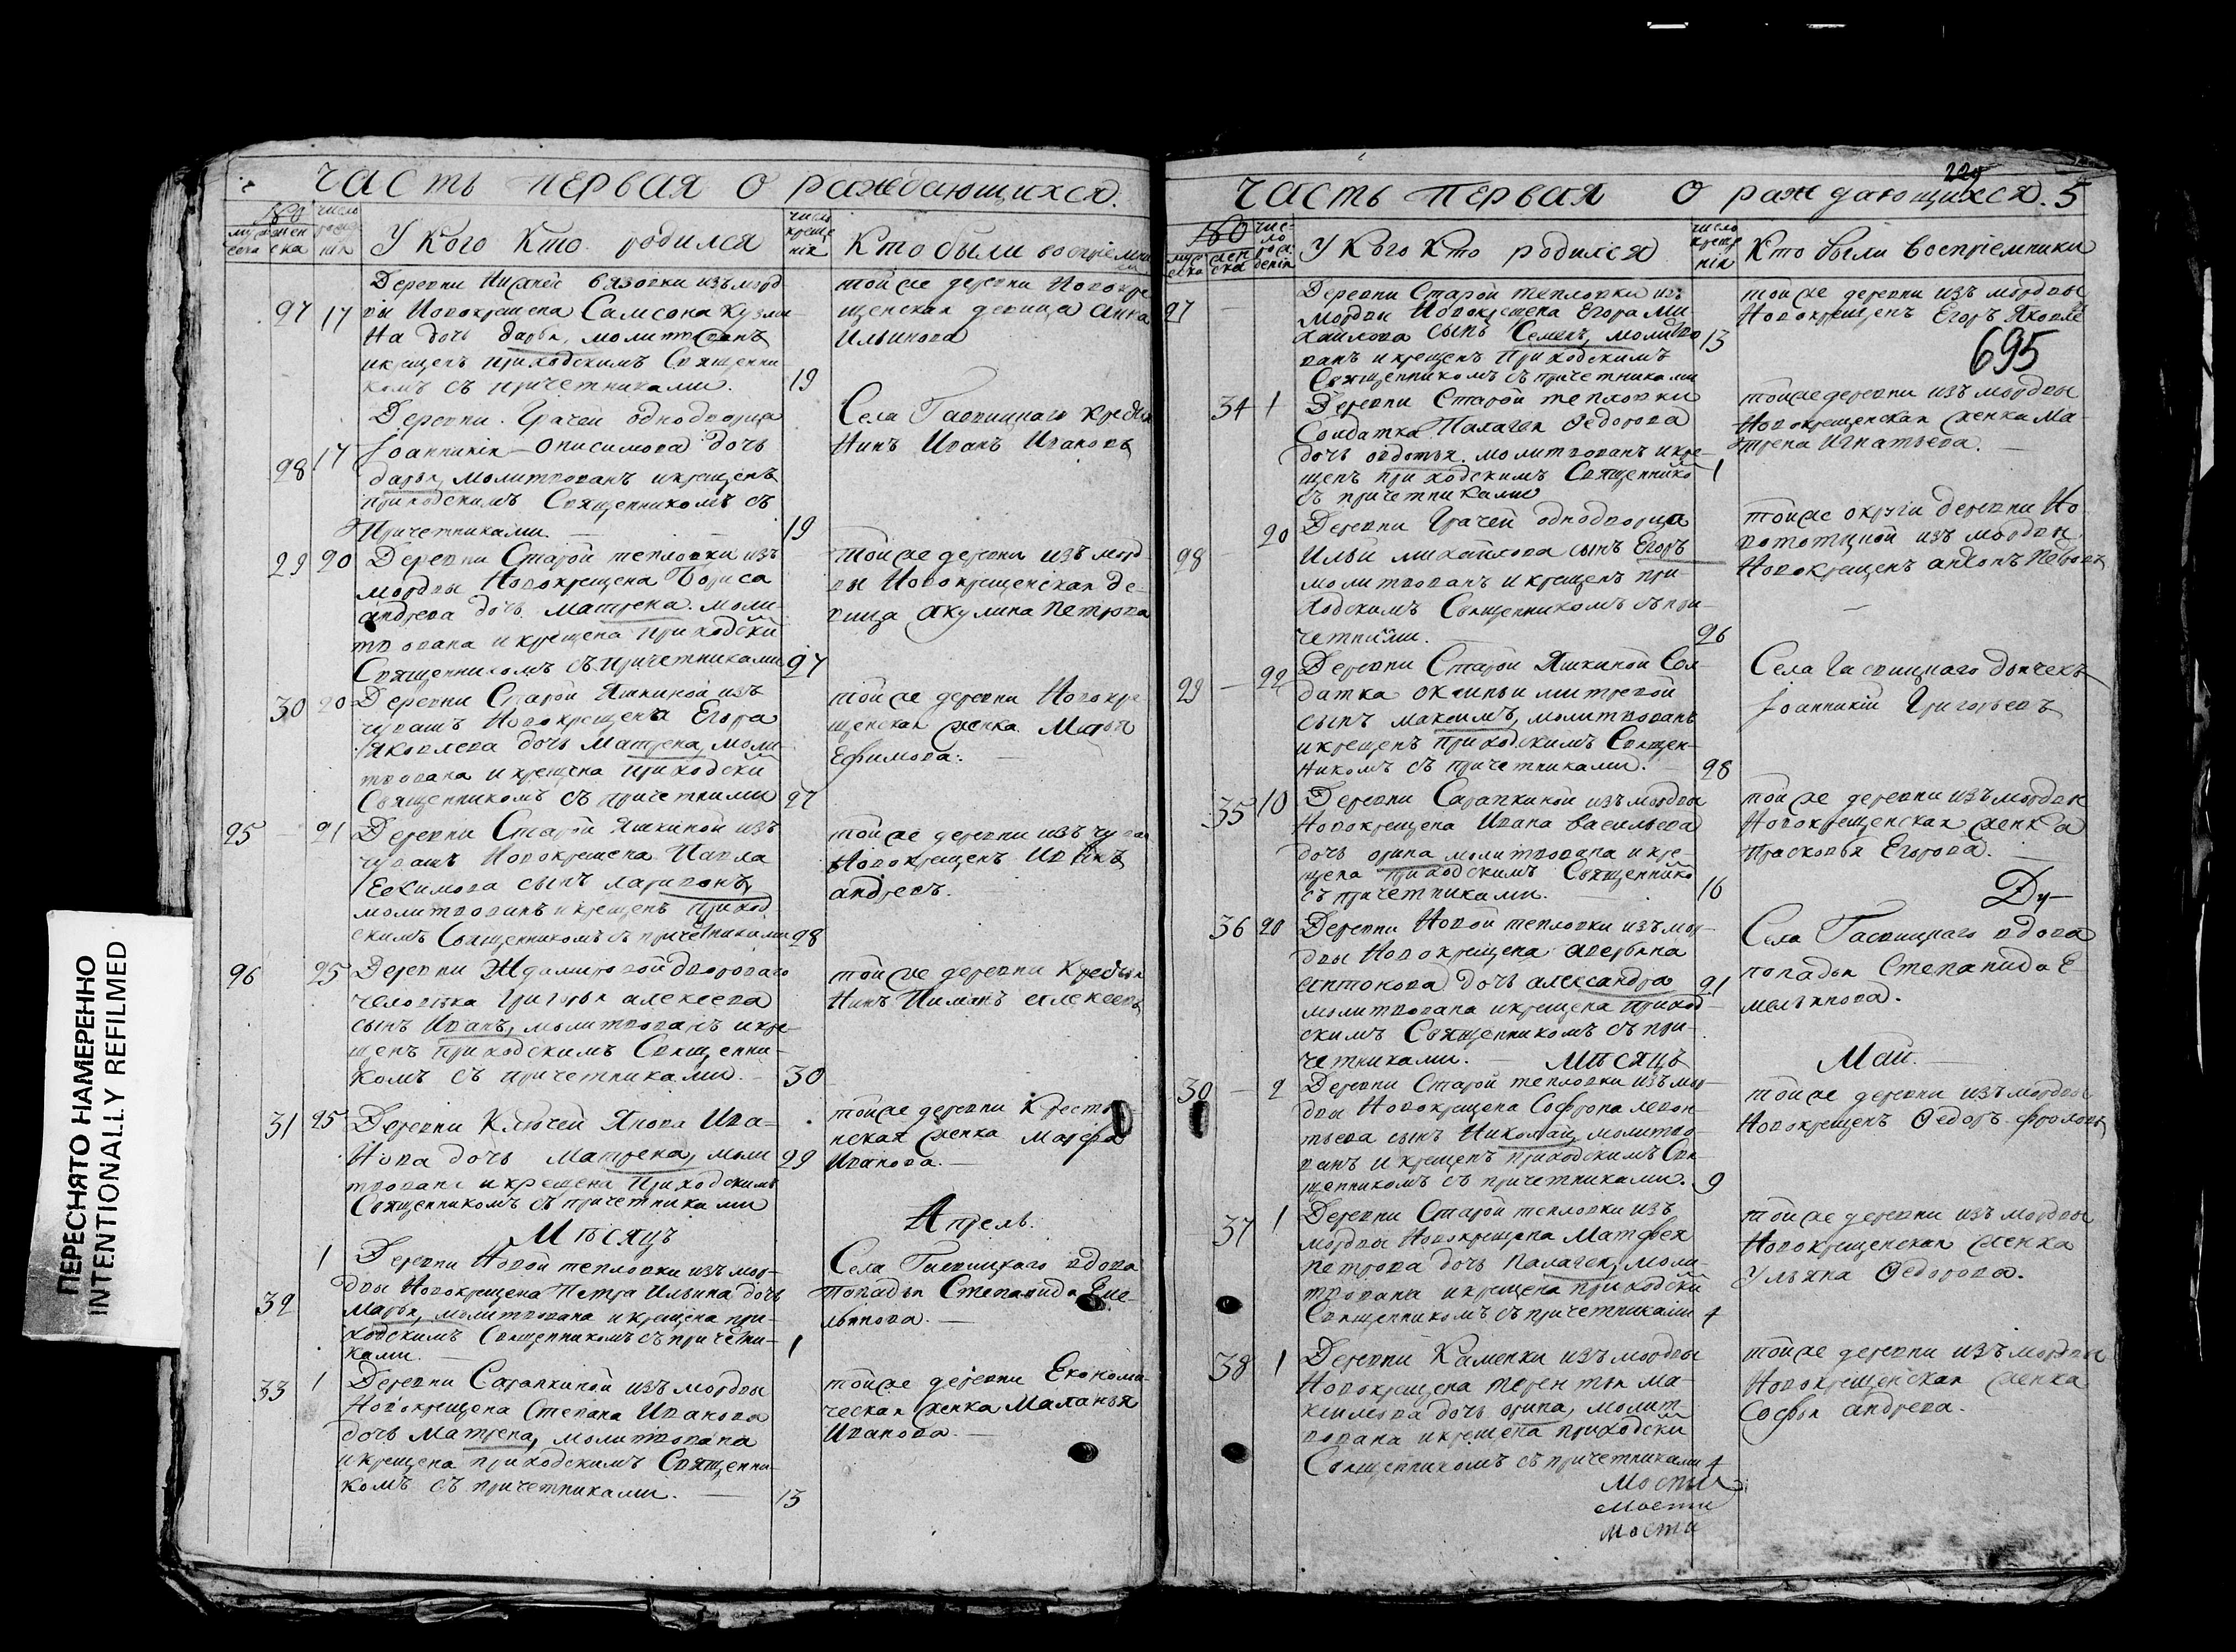 часть первая о раждающихся.
число
У кого кто родился
Кто были воспрiемни
Деревни Нижней Вязовки изъ морд
27 17 вы Новокрещена Самсона Кузми
на дочь дарья, молитвованъ
и крещенъ приходскимъ Священни
комъ съ причетниками. 19
той же деревни Новокре
щенская девица Анна
Ильинова
Деревни Грачей однодворца
Iоанникiя Онисимова дочь
28 17 дарья, молитвованъ и крещенъ
приходскимъ Священникомъ съ
Причетниками 19
Села Гаврицкаго Крестья
нинъ Иванъ Ивановъ
29 20 Деревни Старой тепловки изъ
мордвы Новокрещена Бориса
андрева дочь матрена. моли-
твована и крещена приходски
Священникомъ съ причетниками 27
той же деревни изъ морд-
вы Новокрещенская де-
вица Акулина Петрова
30 20 Деревни Старой Яшкиной изъ
чувашъ Новокрещена Егора
Яковлева дочь Матрена, моли
твована и крещена приходски
Священникомъ съ причетниками 27
той же деревни Новокре
щенская женка Марья
Ефимова.
25 — 21 Деревни Старой Яшкиной изъ
чувашъ Новокрещена Павла
Евхимова сынъ ларивонъ,
молитвованъ и крещенъ приход
скимъ Священникомъ съ причетниками 28
той же деревни изъ чуваш
Новокрещенъ
андревъ.
26 25 Деревни Ждамировой двороваго
человека Григорья алексеева
сынъ Иванъ, молитвованъ и кре-
щенъ приходскимъ Священни-
комъ съ причетниками. — 30
той же деревни Крестья
нинъ Пиманъ алексеевъ
31 25 Деревни Ключей Якова Ива-
нова дочь Матрена, моли 29
твована и крещена Приходскимъ
Священникомъ съ причетниками
той же деревни Крестья
нская женка Марфа
Иванова. —
Мѣсяцъ Апрель.
1 Деревни Новой тепловки изъ мор-
двы Новокрещена Петра Ильина дочь
32 Марья, молитвована и крещена при-
ходскимъ Священникомъ съ причетни-
ками. — 1
Села Гаврицкаго вдова
попадья Степанида Еме-
льянова. —
33 1 Деревни Сарапкиной изъ мордвы
Новокрещена Степана Иванова
дочь Матрена, молитвована
и крещена приходскимъ Священни
комъ съ причетниками. — 13
той же деревни Економи-
ческая женка Маланья
Иванова. —
часть первая о раждающихся. 5
695
У кого кто родился
Кто были воспрiемники
Деревни Старой тепловки изъ
27 — мордвы Новокрещена Егора Ми-
хайлова сынъ Семенъ, молитво 13
ванъ и крещенъ приходскимъ
Священникомъ съ причетниками
той же деревни изъ мордвы
Новокрещенъ Егоръ Яковле
34 1 Деревни Старой тепловки
Солдатка Палагея Ѳедорова
дочь овдотья. молитвованъ и кре-
щенъ приходскимъ Священнико 1
съ причетниками
той же деревни изъ мордвы
Новокрещенская женка Ма-
трена Игнатьева. —
20 Деревни Грачей однодворца
28 — Ильи михайлова сынъ Егоръ
молитвованъ и крещенъ при-
ходскимъ Священникомъ съ при-
четниками. 26
той же округи деревни Но
изъ мордвы
Новокрещенъ Петровъ
29 — 22 Деревни Старой Яшкиной Сол
датка оксиньи митревой
сынъ максимъ, молитвованъ
и крещенъ приходскимъ Священ-
никомъ съ причетниками. — 28
Села Гаврицкаго дьячекъ
Iоанникiй Григорьевъ
35 10 Деревни Сарапкиной изъ мордвы
Новокрещена Ивана васильева
дочь орина молитвована и кре-
щена приходскимъ Священнико
съ причетниками. 16
той же деревни изъ мордвы
Новокрещенская женка
Прасковья Егорова. —
Ду-
36 20 Деревни Новой тепловки изъ мор-
двы Новокрещена аверьяна
антонова дочь александра 21
молитвована и крещена приход-
скимъ Священникомъ съ при-
четниками. —
Села Гаврицкаго вдова
попадья Степанида Е-
мельянова.
Мѣсяцъ Май.
30 — 2 Деревни Старой тепловки изъ мор-
двы Новокрещена Софрона левон-
тьева сынъ Николай, молитво-
ванъ и крещенъ приходскимъ Свя-
щенникомъ съ причетниками. 9
той же деревни изъ мордвы
Новокрещенъ Ѳедоръ фроловъ
37 1 Деревни Старой тепловки изъ
мордвы Новокрещена Матфея
Петрова дочь Палагея, моли-
твована и крещена приходски
Священникомъ съ причетниками 4
той же деревни изъ мордвы
Новокрещенская женка
Ульяна Ѳедорова.
38 1 Деревни Каменки изъ мордвы
Новокрещена терентья ма-
ксимова дочь орина, молит-
вована и крещена приходски
Священникомъ съ причетниками 4
той же деревни изъ мордвы
Новокрещенская женка
Софья андрева.
Мости
Мости
мости
ПЕРЕСНЯТО НАМЕРЕННО
INTENTIONALLY REFILMED